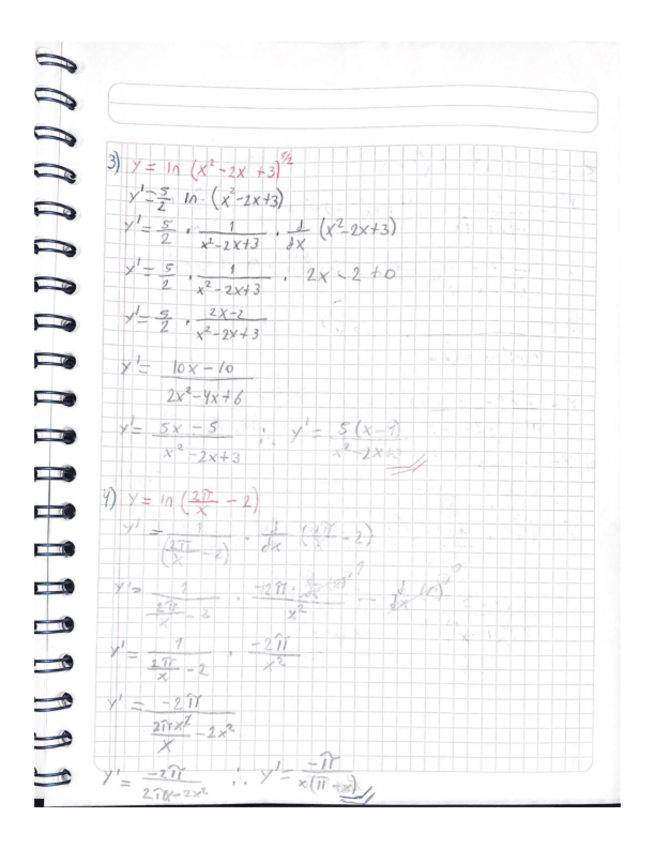 3) y = ln (x² - 2x + 3)^5/2
y' = 5/2 ln (x² - 2x + 3)
y' = 5/2 · 1/(x² - 2x + 3) · d/dx (x² - 2x + 3)
y' = 5/2 · 1/(x² - 2x + 3) · 2x - 2 + 0
y' = 5/2 · (2x - 2)/(x² - 2x + 3)
y' = (10x - 10)/(2x² - 4x + 6)
y' = (5x - 5)/(x² - 2x + 3) ∴ y' = 5(x - 1)/(x² - 2x + 3)
4) y = ln (2π/x - 2)
y' = 1/(2π/x - 2) · d/dx (2π/x - 2)
y' = 1/(2π/x - 2) · (-2π · d/dx (x))/x² - d/dx
y' = 1/(2π/x - 2) · -2π/x²
y' = -2π/(2πx²/x - 2x²)
y' = -2π/(2πx - 2x²) ∴ y' = -π/(x(π - x))